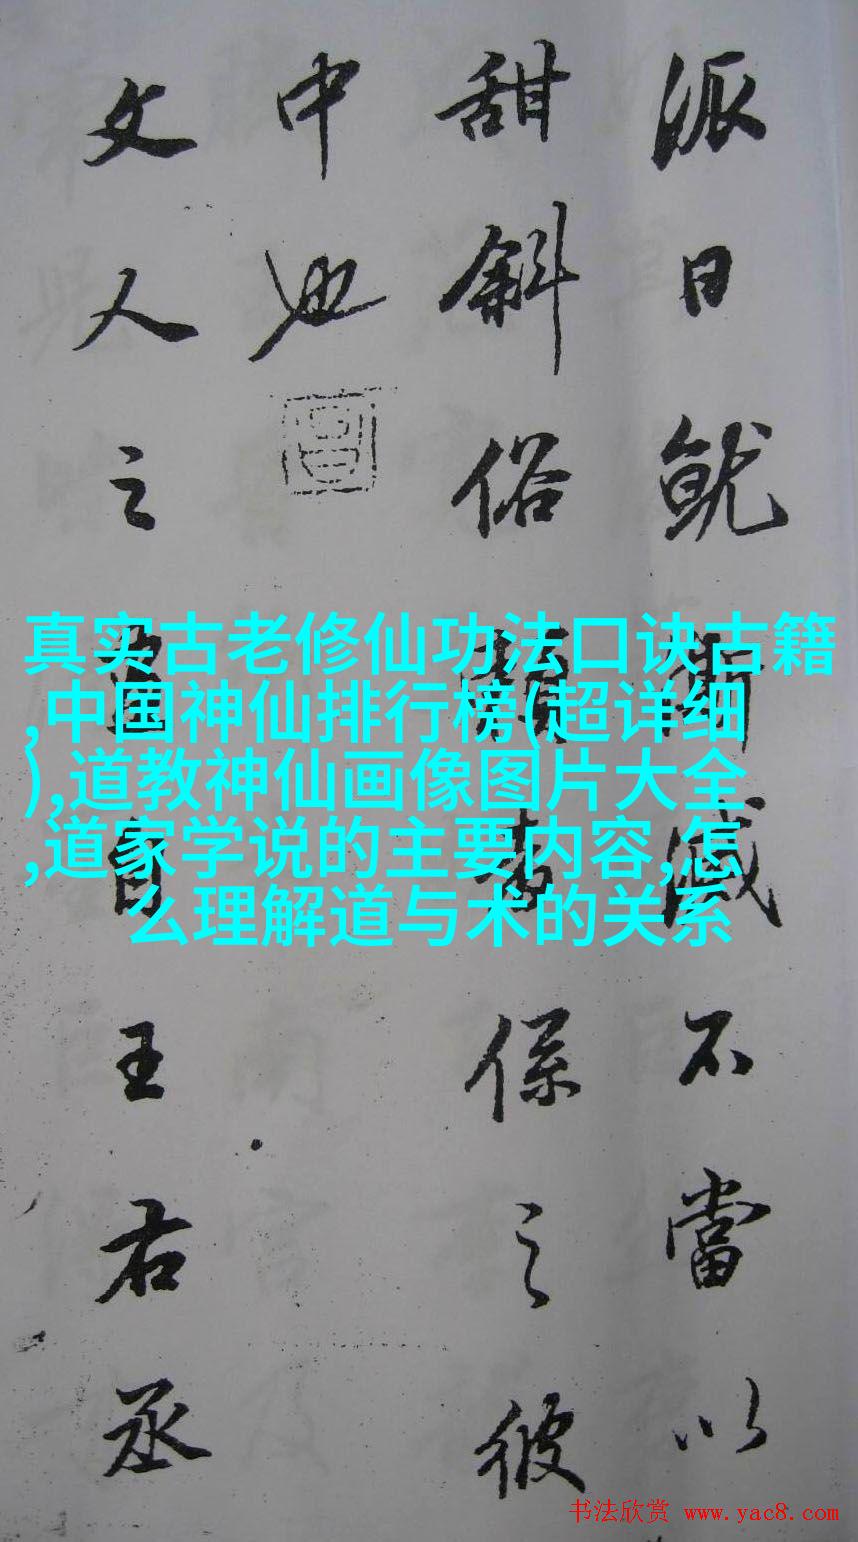 派日就澌滅不當以
甜斜俗賴者係之彼
中也
文人之畫自王右丞
真实古老修仙功法口诀古籍
,中国神仙排行榜(超详细
),道教神仙画像图片大全
,道家学说的主要内容,怎
么理解道与术的关系
书法欣赏 www.yac8.com